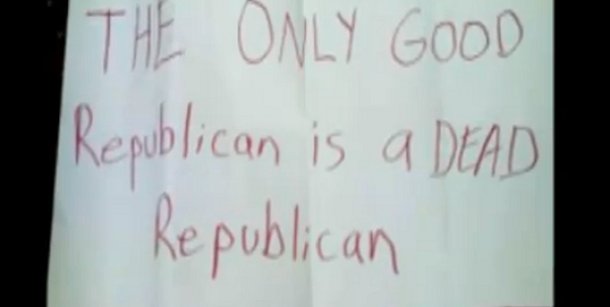 THE ONLY GOOD
Republican is a DEAD
Republican